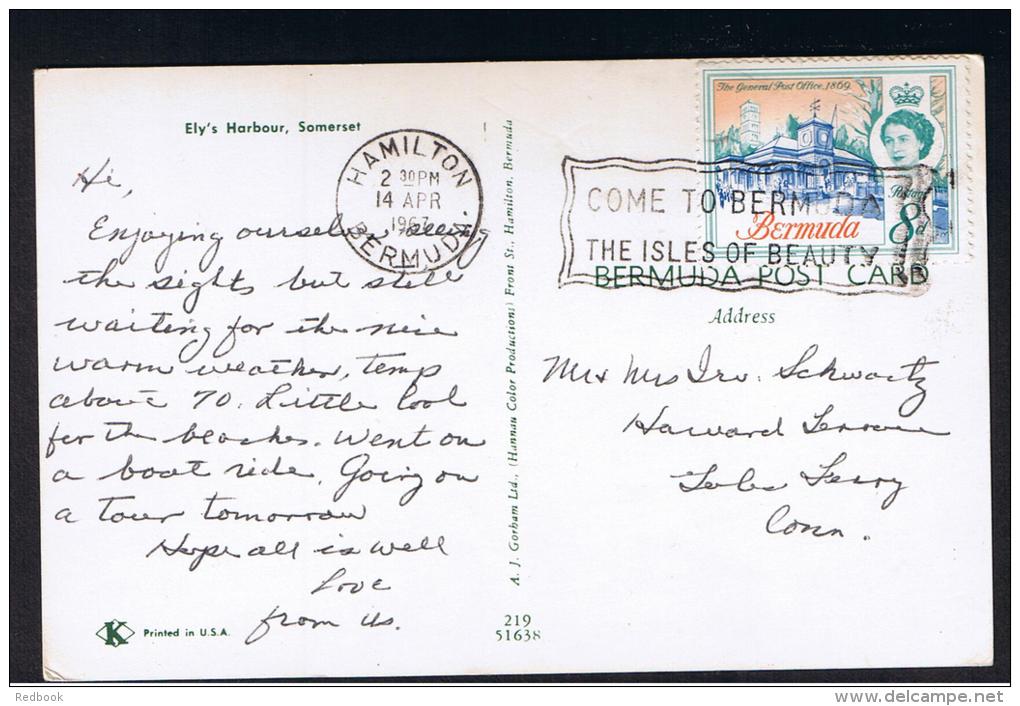 Ely's Harbour, Somerset
Hi,
Enjoying ourselves, seeing
the sights but still
waiting for the nice
warm weather, temp
about 70. Little cool
for the beaches. Went on
a boat ride. Going on
a tour tomorrow
Hope all is well
Love
from us.
K Printed in U.S.A.
A. J. Gorham Ltd., (Hannau Color Productions) Front St., Hamilton, Bermuda
219
51638
HAMILTON
2 30PM
14 APR
1967
BERMUDA.
COME TO BERMUDA
THE ISLES OF BEAUTY
The General Post Office, 1869
Postage
8d
Bermuda
BERMUDA POST CARD
Address
Mr + Mrs Irv. Schwartz
Terrace
Ferry
Conn.
Redbook
www.delcampe.net